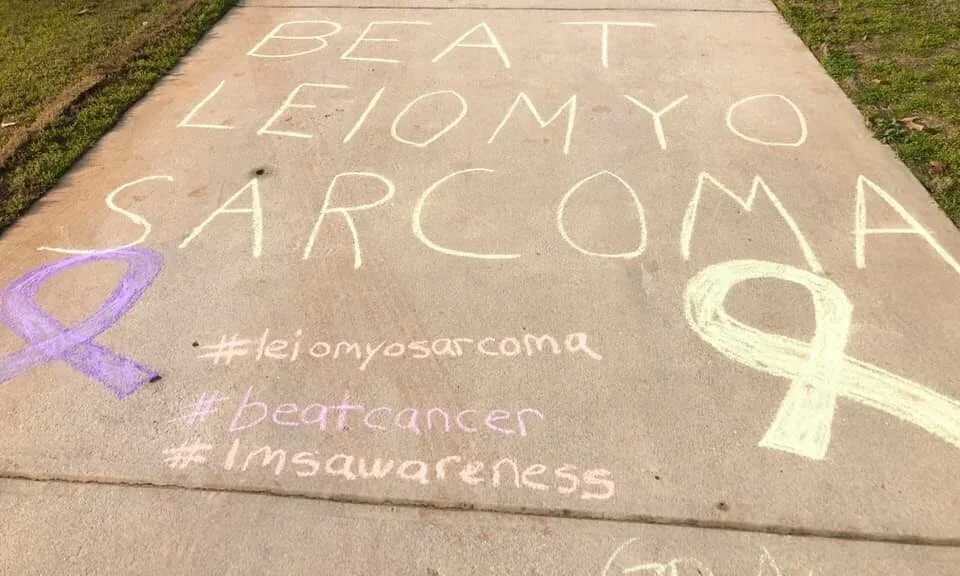 BEAT
LEIOMYO
SARCOMA
#leiomyosarcoma
#beatcancer
#lmsawareness